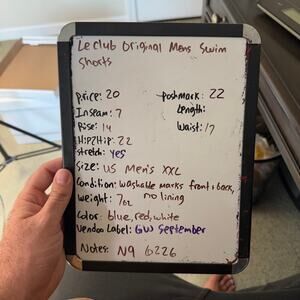 Le Club Original Mens Swim
Shorts
price: 20 poshmark: 22
Inseam: 7 Length:
Rise: 14 Waist: 17
Hip2Hip: 22
stretch: yes
Size: US Men's XXL
Condition: washable marks front & back,
no lining
weight: 7oz
Color: blue, red, white
Vendoo Label: GW September
Notes: N9 6226